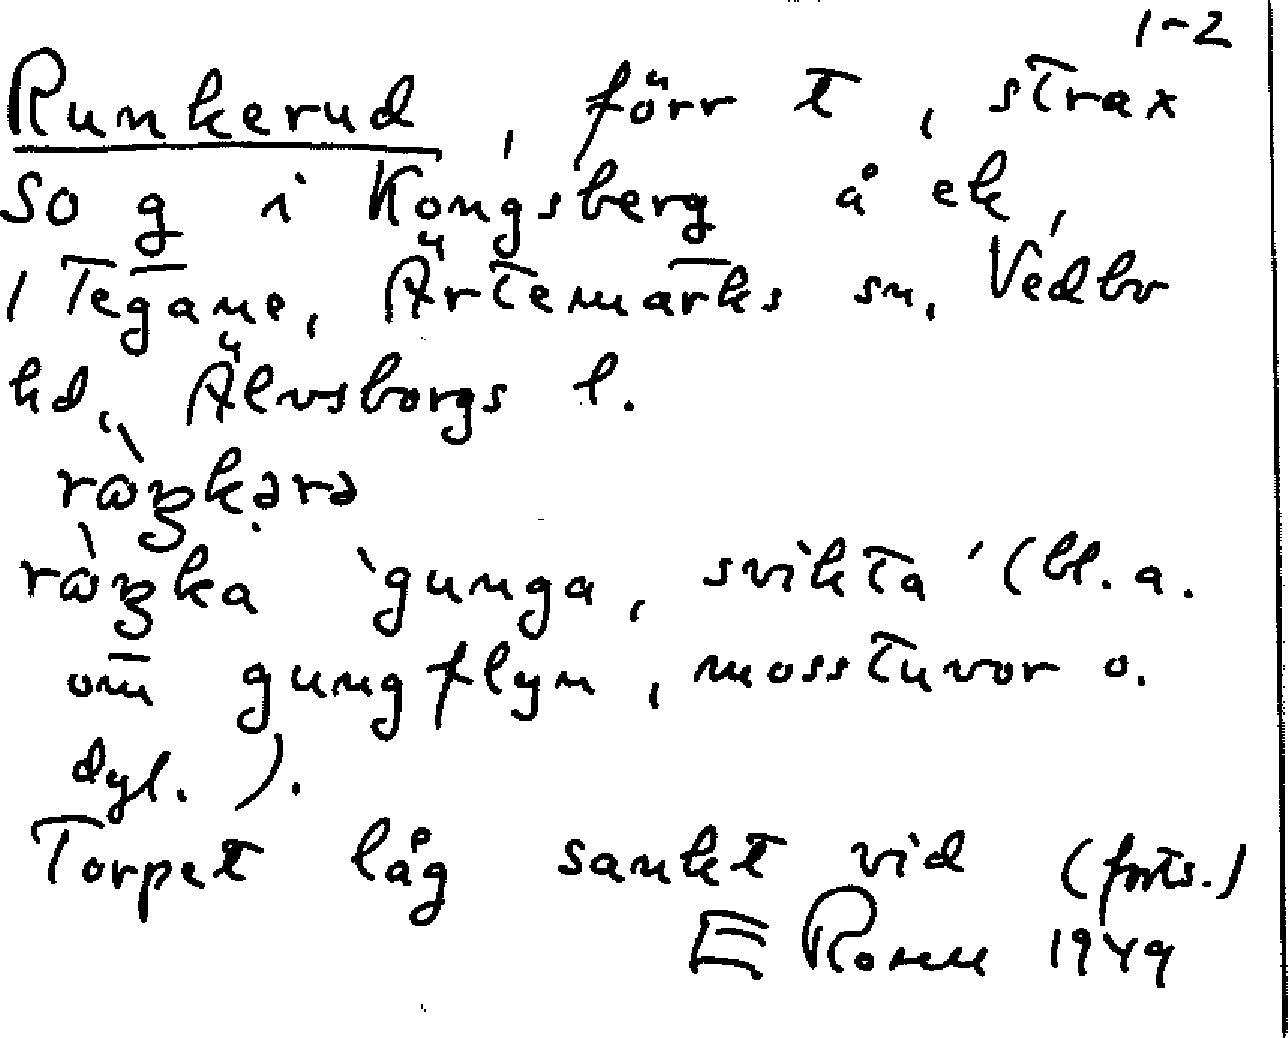 1-2
Runkerud, förr t, strax
SO g i Kongsberg å ek,
1 Tegane, Ärtemarks sn, Vedbo
hd, Älvsborgs l.
rὼŋkərə
rὼŋka ‵gunga, svikta′ (bl. a.
om gungflyn, mosstuvor o.
dyl.).
Torpet låg sankt vid (forts.)
E Rosell 1949